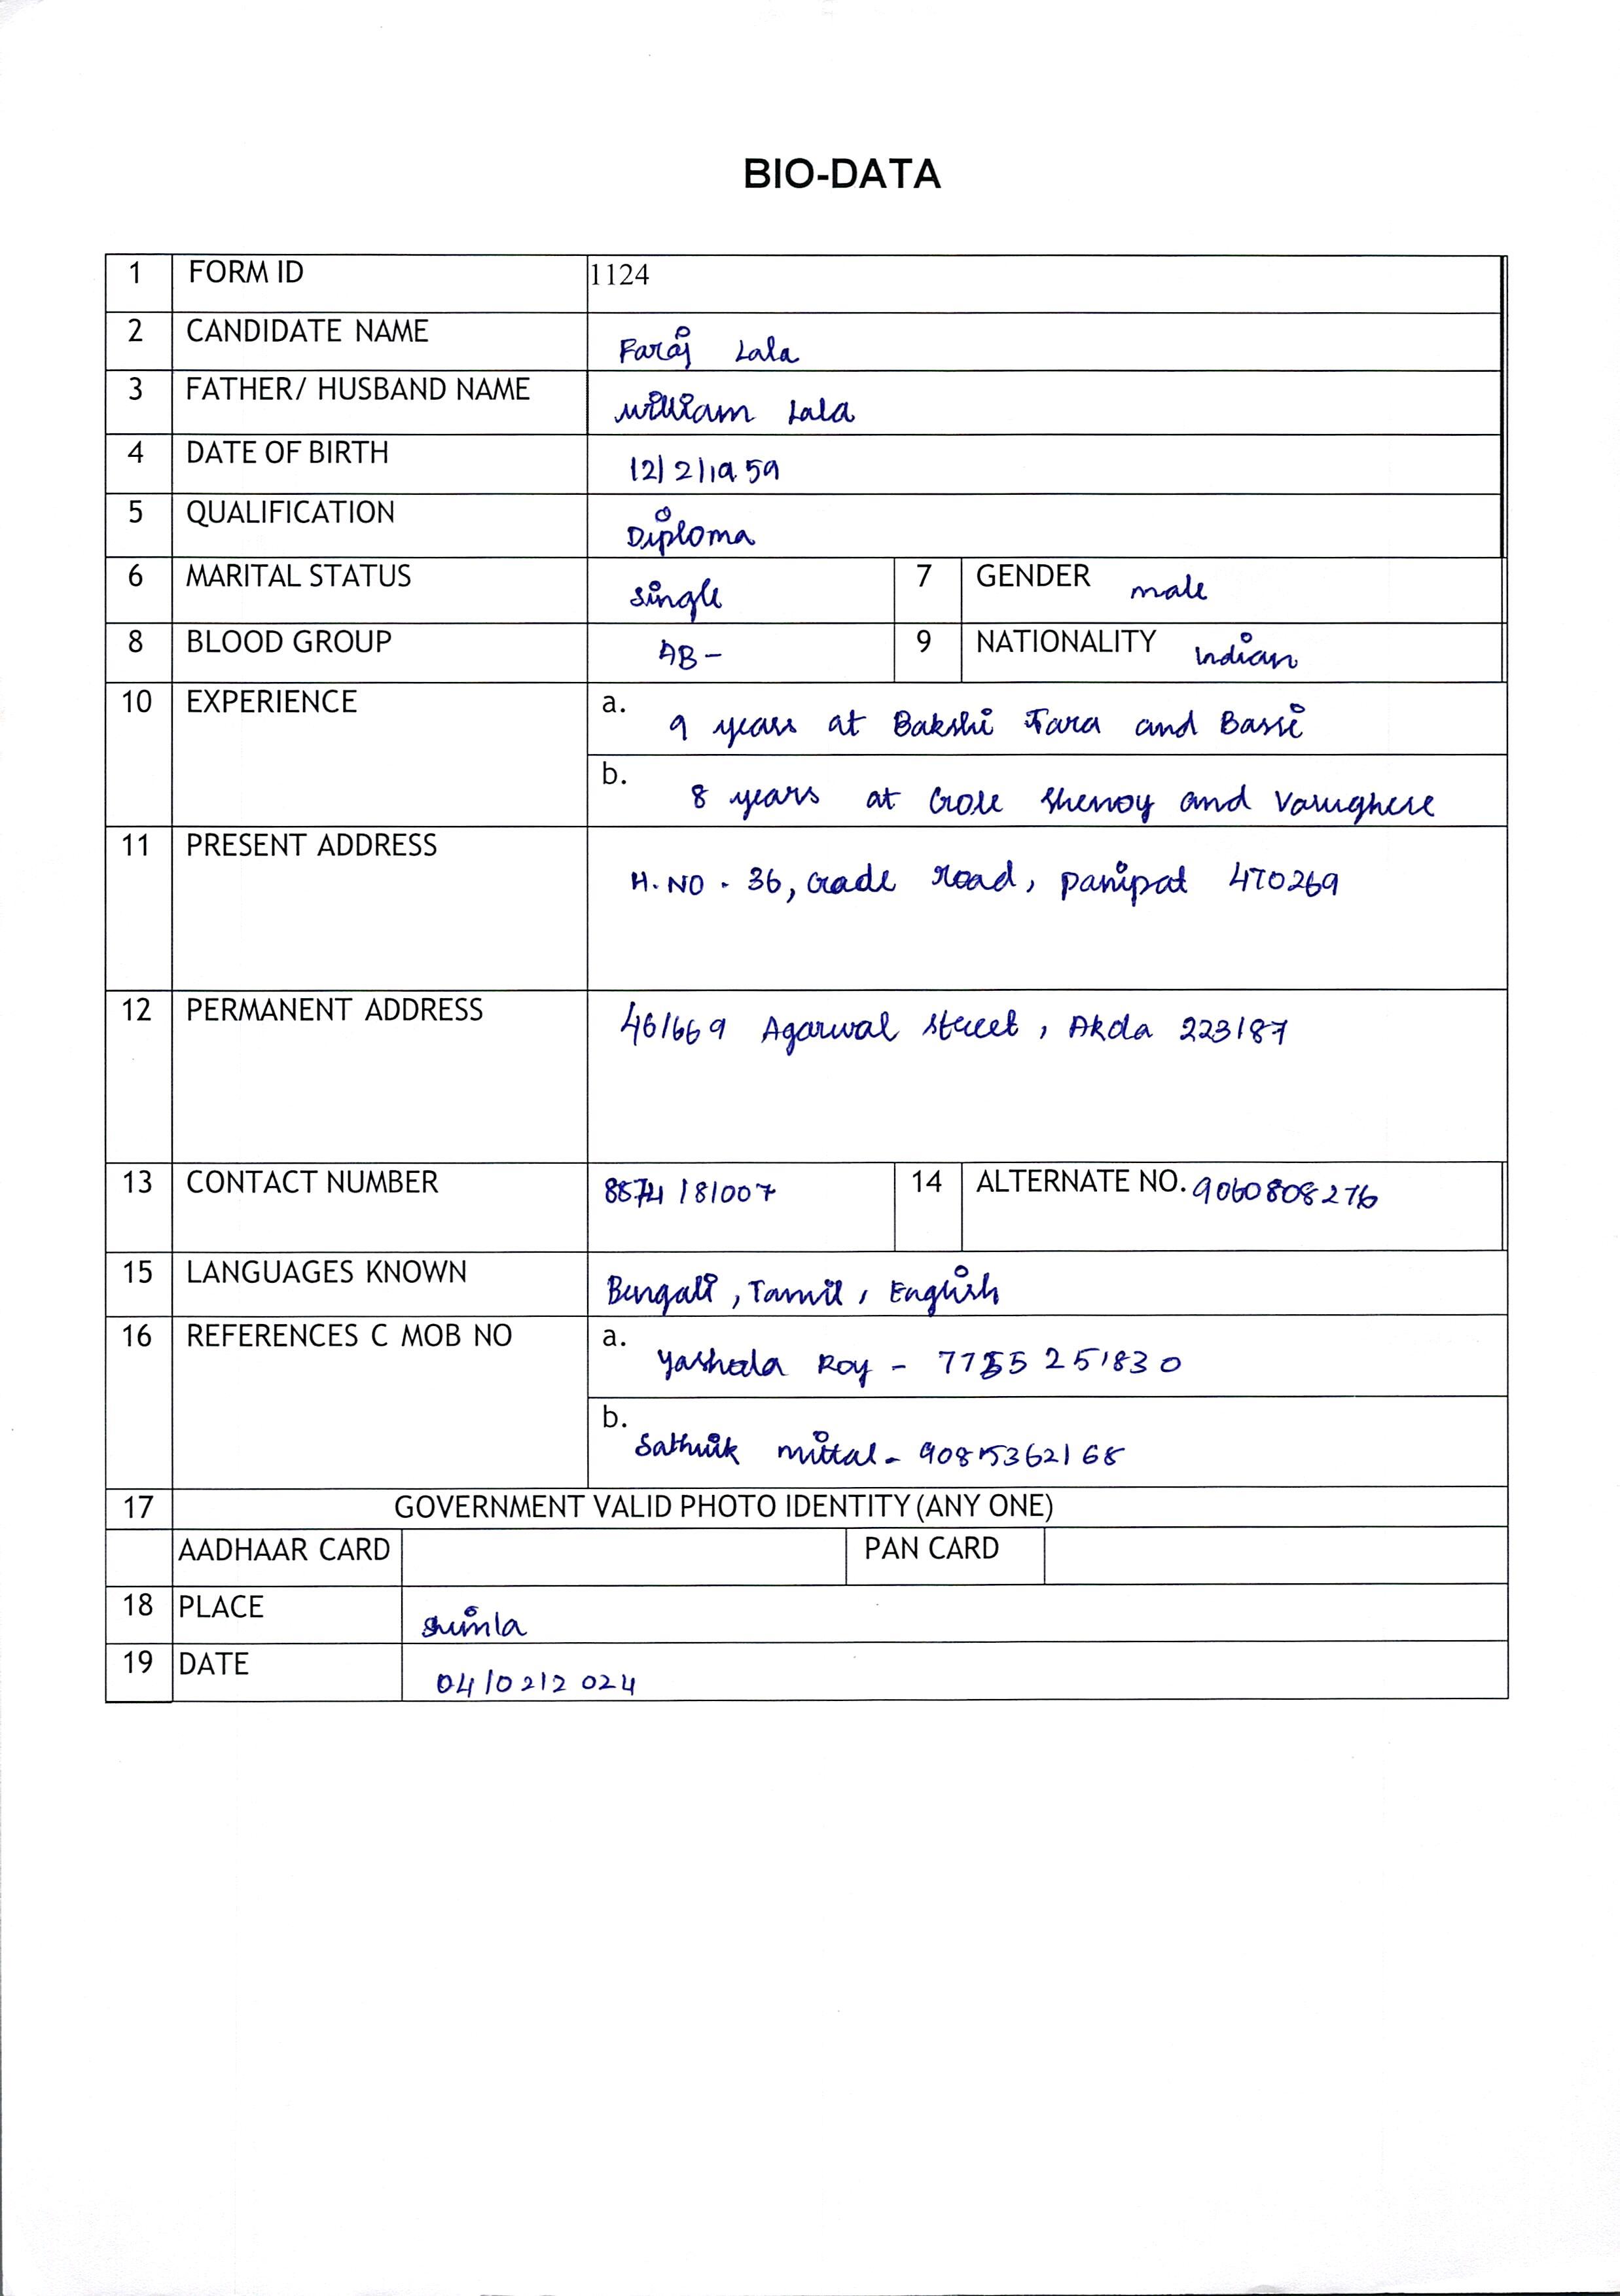 BIO-DATA
1 FORM ID 1124
2 CANDIDATE NAME Faraj Lala
3 FATHER/ HUSBAND NAME William Lala
4 DATE OF BIRTH 12/2/1959
5 QUALIFICATION Diploma
6 MARITAL STATUS Single 7 GENDER male
8 BLOOD GROUP AB- 9 NATIONALITY Indian
10 EXPERIENCE a. 9 years at Bakshi Tara and Bassi
b. 8 years at Gole Shenoy and Varughese
11 PRESENT ADDRESS H.NO. 36, Gade road, Panipat 470269
12 PERMANENT ADDRESS 46/669 Agarwal Street, Akola 223187
13 CONTACT NUMBER 8874181007 14 ALTERNATE NO. 9060808276
15 LANGUAGES KNOWN Bengali, Tamil, English
16 REFERENCES C MOB NO a. Roy - 251830
b. Sathvik Mittal - 9085362168
17 GOVERNMENT VALID PHOTO IDENTITY (ANY ONE)
AADHAAR CARD PAN CARD
18 PLACE Shimla
19 DATE 04/02/2024